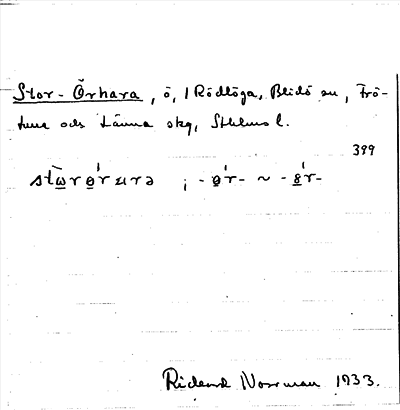 Stor-Örhara, ö, i Rödlöga, Blidö sn, Frö-
tuna och Länna skg, Sthlms l.
399
; - ~ -
Rickard Norrman 1933.